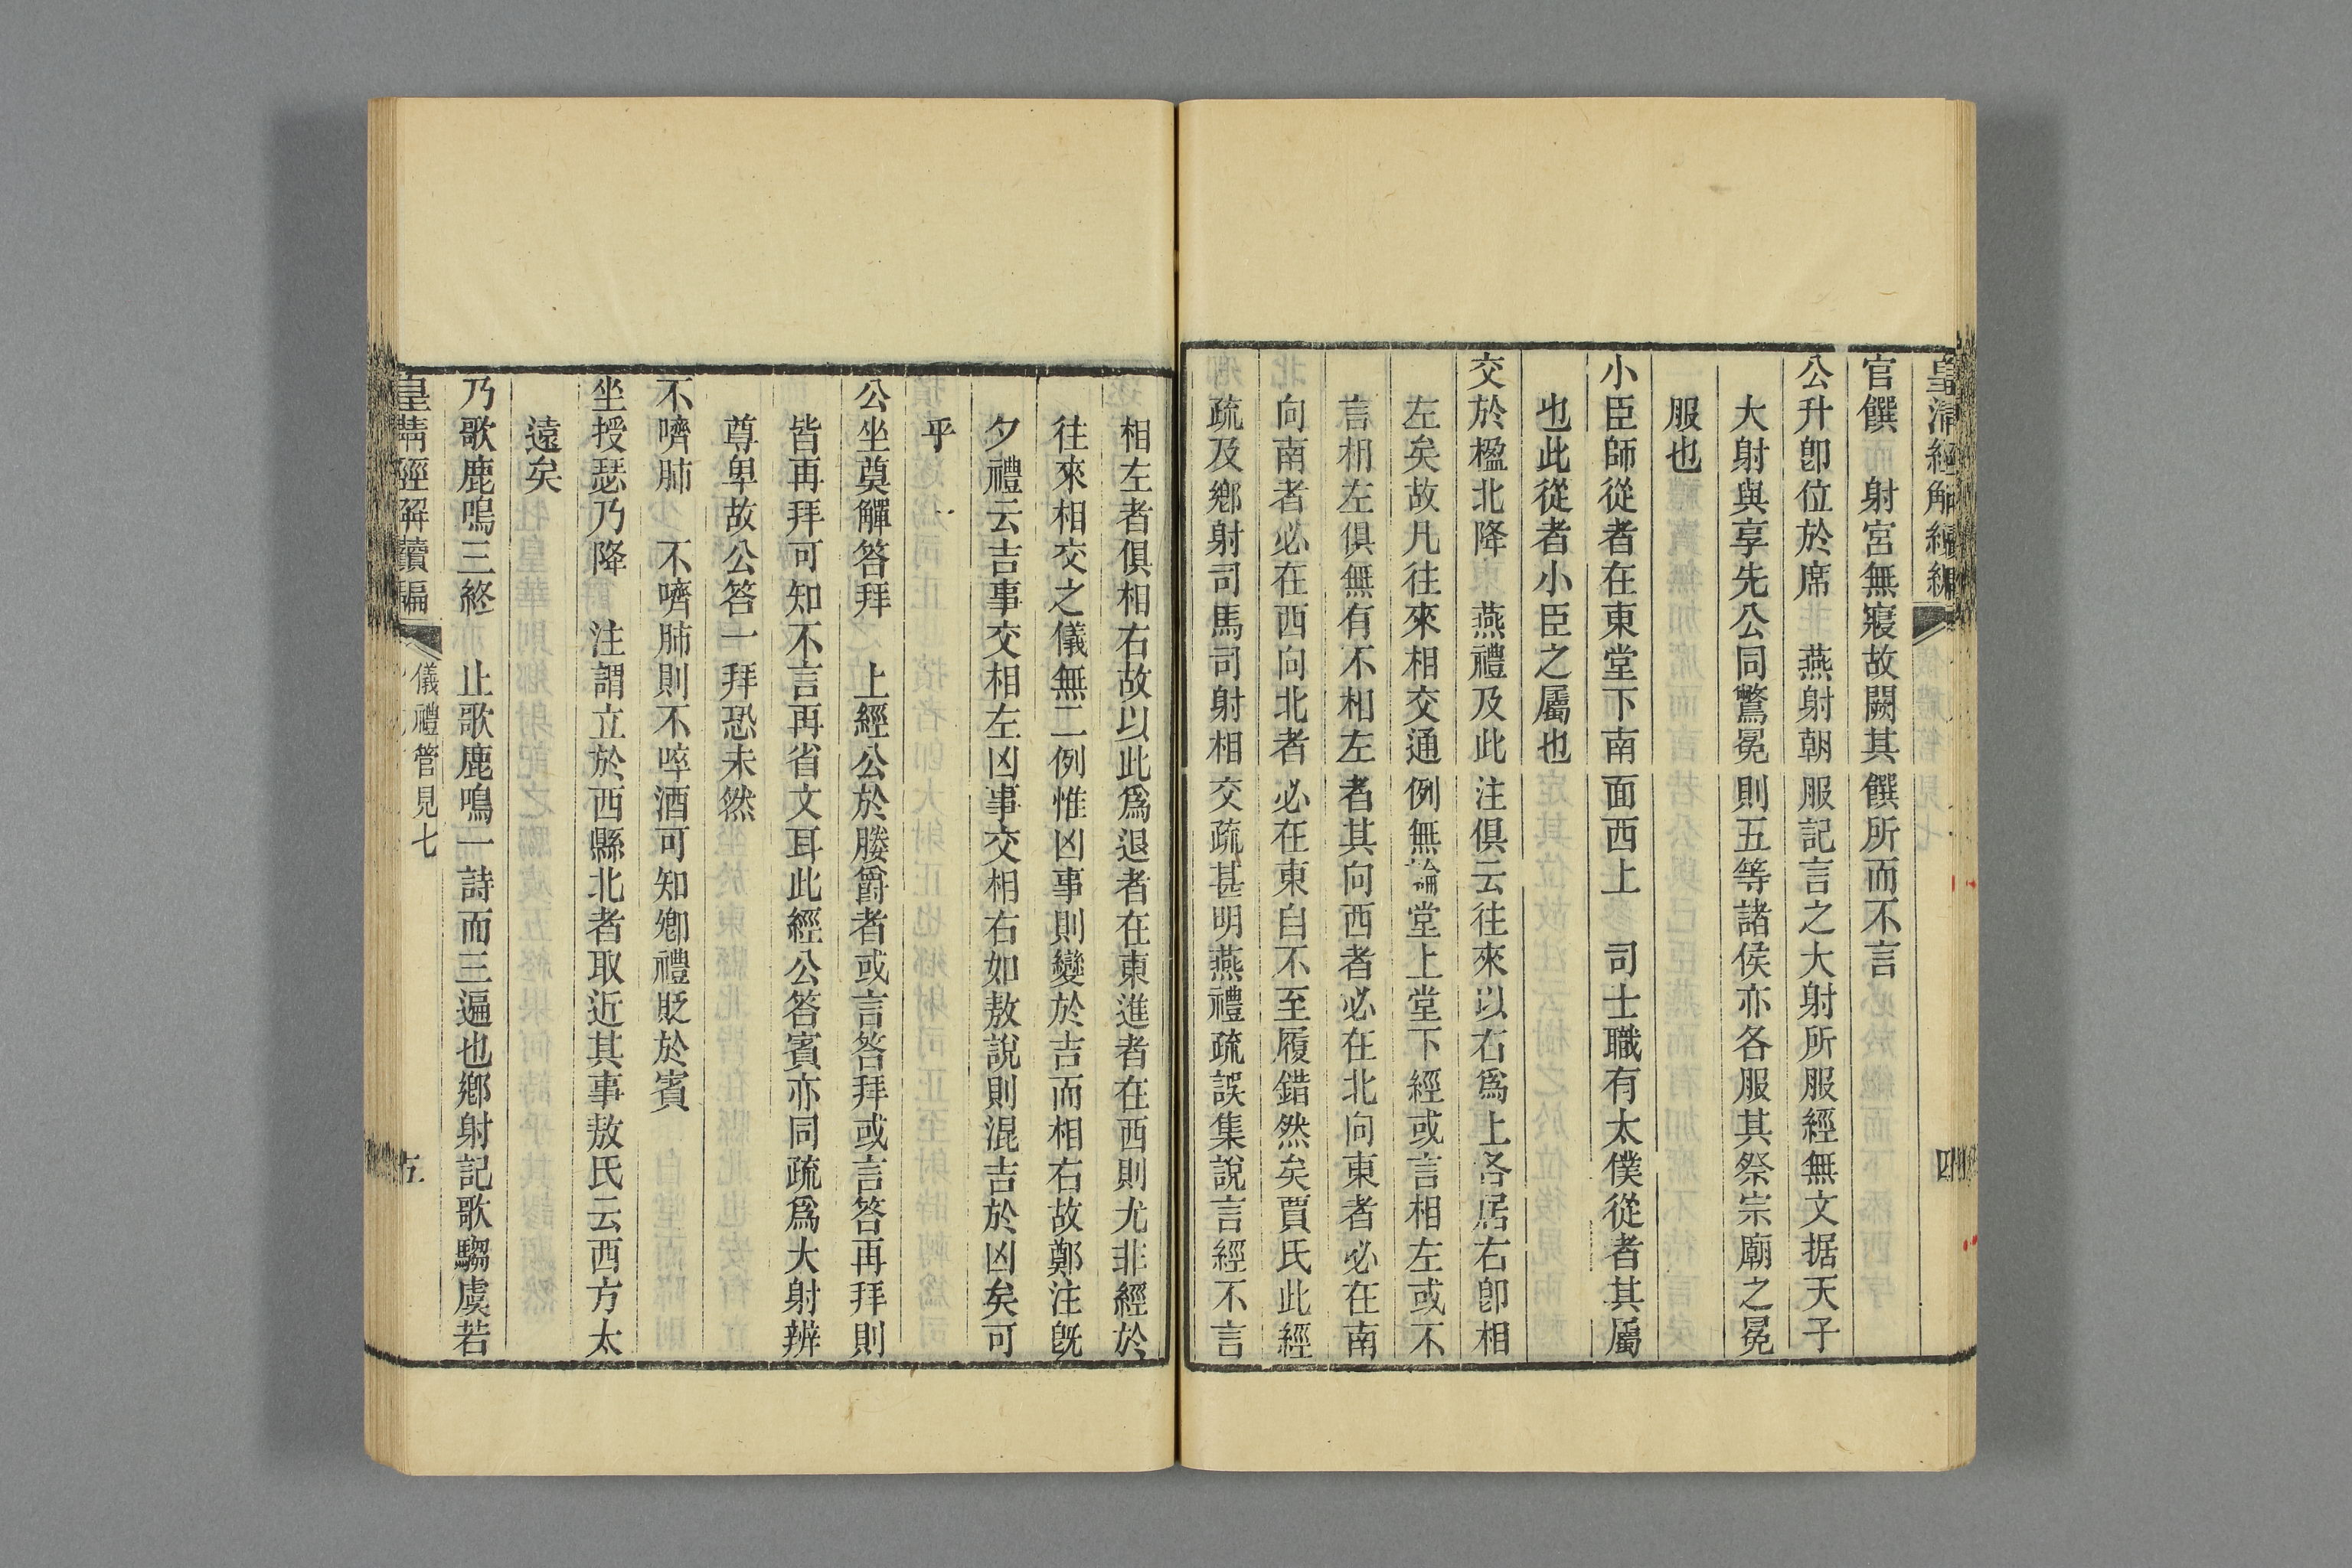 皇清經解續編
四
官饌　射宮無寢故闕其饌所而不言
公升卽位於席　燕射朝服記言之大射所服經無文据天子
大射與享先公同鷩冕則五等諸侯亦各服其祭宗廟之冕
服也
小臣師從者在東堂下南面西上　司士職有太僕從者其屬
也此從者小臣之屬也
交於楹北降　燕禮及此注俱云往來以右爲上各居右卽相
左矣故凡往來相交通例無論堂上堂下經或言相左或不
言相左俱無有不相左者其向西者必在北向東者必在南
向南者必在西向北者必在東自不至履錯然矣賈氏此經
疏及鄉射司馬司射相交疏甚明燕禮疏誤集說言經不言
相左者俱相右故以此爲退者在東進者在西則尤非經於
往來相交之儀無二例惟凶事則變於吉而相右故鄭注旣
夕禮云吉事交相左凶事交相右如敖說則混吉於凶矣可
乎
公坐奠觶答拜　上經公於媵爵者或言答拜或言答再拜則
皆再拜可知不言再省文耳此經公答賓亦同疏爲大射辨
尊卑故公答一拜恐未然
不嚌肺　不嚌肺則不啐酒可知鄉禮貶於賓
坐授瑟乃降　注謂立於西縣北者取近其事敖氏云西方太
遠矣
乃歌鹿鳴三終　止歌鹿鳴一詩而三遍也鄉射記歌騶虞若
皇淸經解續編
儀禮管見七
五